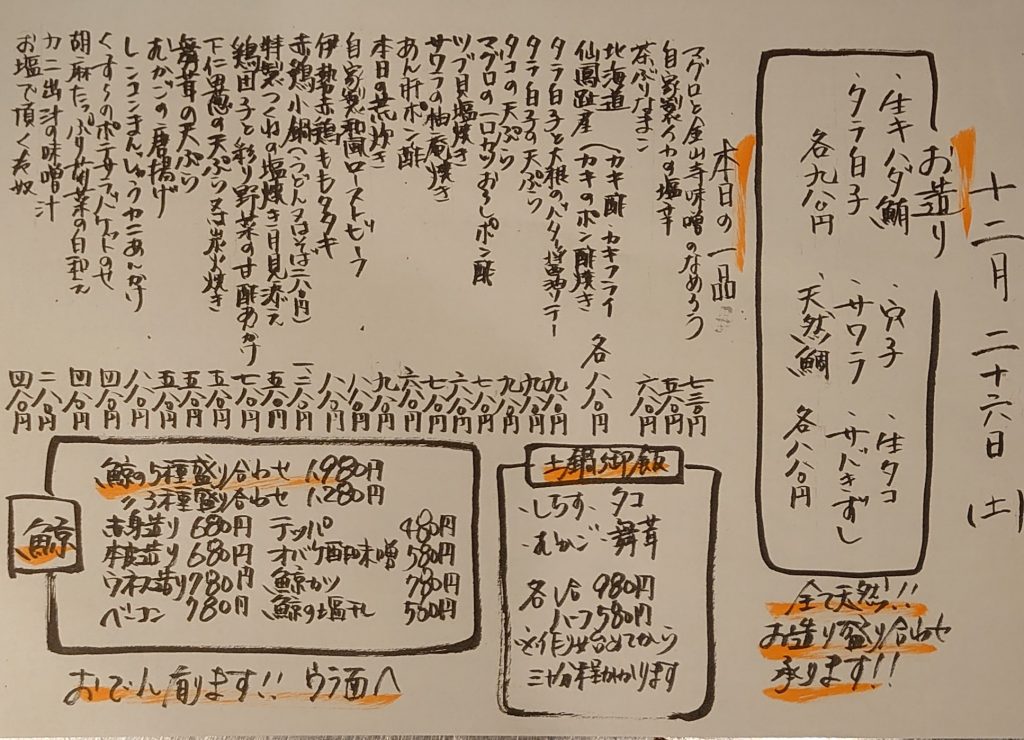 十二月二十六日(土)
お造り
・生キハダ鮪 ・穴子 ・生タコ
・タラ白子 ・サワラ ・サバきずし
各九八〇円 ・天然鯛 各八八〇円
全て天然!!
お造り盛り合わせ
承ります!!
本日の一品
マグロと金山寺味噌のなめろう 七三〇円
自家製イカの塩辛 五八〇円
茶ぶりなまこ 六八〇円
北海道 (カキ酢・カキフライ
仙鳳趾産 (カキのポン酢焼き 各八八〇円
タラ白子と大根のバター醤油ソテー 九八〇円
タラ白子の天ぷら 九八〇円
タコの天ぷら 九八〇円
マグロの一口カツおろしポン酢 七八〇円
ツブ貝塩焼き 六八〇円
サワラの柚庵焼き 七八〇円
あん肝ポン酢 六八〇円
本日の煮炊き 九八〇円
自家製和風ローストビーフ 八八〇円
伊勢赤鶏ももタタキ 八八〇円
赤鶏小鍋(うどん又はそば二八〇円) 一、二八〇円
特製つくねの塩焼き月見添え 五八〇円
鶏団子と彩り野菜の甘酢あんかけ 七八〇円
下仁田葱の天ぷら又は炭火焼き 五八〇円
舞茸の天ぷら 五八〇円
むかごの唐揚げ 五八〇円
レンコンまんじゅうカニあんかけ 八八〇円
くずし冬のポテサラバケットのせ 四八〇円
胡麻たっぷり菊菜の白和え 四八〇円
カニ出汁の味噌汁 二八〇円
お塩で頂く冷奴 四八〇円
土鍋御飯
・しらす ・タコ
・むかご ・舞茸
各1合 980円
ハーフ 580円
※作り始めてから
三十分程かかります
鯨
鯨の5種盛り合わせ 1,980円
〃3種盛り合わせ 1,280円
赤身造り 680円 テッパ 480円
本皮造り 680円 オバケ酢味噌 580円
ウネス造り 780円 鯨カツ 780円
ベーコン 780円 鯨の塩干し 500円
おでん有ります!! ウラ面へ